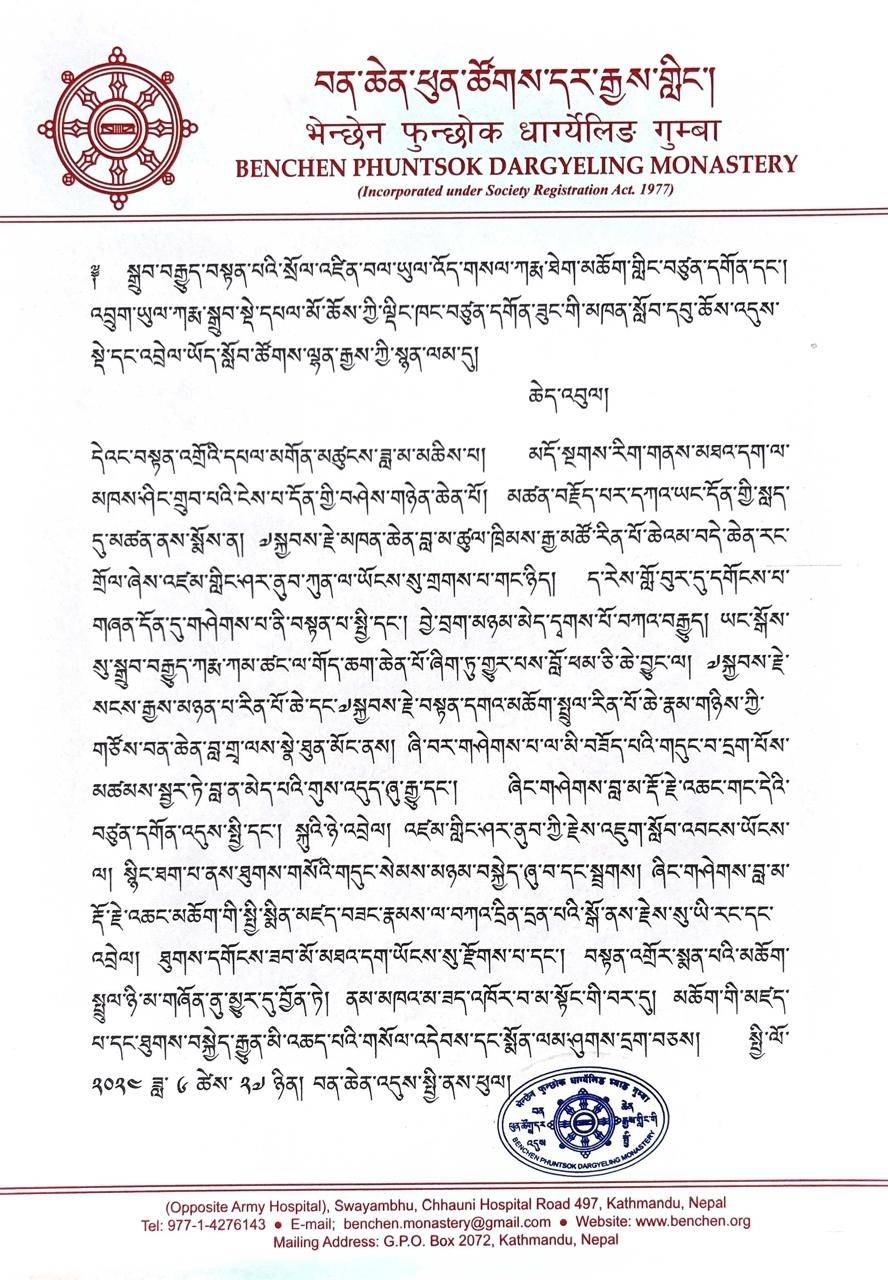 བན་ཆེན་ཕུན་ཚོགས་དར་རྒྱས་གླིང་།
भेन्छेन फुन्छोक धार्ग्येलिङ गुम्बा
BENCHEN PHUNTSOK DARGYELING MONASTERY
(Incorporated under Society Registration Act. 1977)
༈ སྒྲུབ་བརྒྱུད་བསྟན་པའི་སྲོལ་འཛིན་བལ་ཡུལ་འོད་གསལ་ཀརྨ་ཐེག་མཆོག་གླིང་བཙུན་དགོན་དང་།
འབྲུག་ཡུལ་ཀརྨ་སྒྲུབ་སྡེ་དཔལ་མོ་ཆོས་ཀྱི་ལྡིང་ཁང་བཙུན་དགོན་ཟུང་གི་མཁན་སློབ་དབུ་ཆོས་འདུས་
སྡེ་དང་འབྲེལ་ཡོད་སློབ་ཚོགས་ལྷན་རྒྱས་ཀྱི་སྙན་ལམ་དུ།
ཆེད་འབུལ།
དེའང་བསྟན་འགྲོའི་དཔལ་མགོན་མཚུངས་ཟླ་མ་མཆིས་པ། མདོ་སྔགས་རིག་གནས་མཐའ་དག་ལ་
མཁས་ཤིང་གྲུབ་པའི་ངེས་པ་དོན་གྱི་བཤེས་གཉེན་ཆེན་པོ། མཚན་བརྗོད་པར་དཀའ་ཡང་དོན་གྱི་སླད་
དུ་མཚན་ནས་སྨོས་ན། ༧སྐྱབས་རྗེ་མཁན་ཆེན་བླ་མ་ཚུལ་ཁྲིམས་རྒྱ་མཚོ་རིན་པོ་ཆེའམ་བདེ་ཆེན་རང་
གྲོལ་ཞེས་འཛམ་གླིང་ཤར་ནུབ་ཀུན་ལ་ཡོངས་སུ་གྲགས་པ་གང་ཉིད། ད་རེས་གློ་བུར་དུ་དགོངས་པ་
གཞན་དོན་དུ་གཤེགས་པ་ནི་བསྟན་པ་སྤྱི་དང་། བྱེ་བྲག་མཉམ་མེད་དྭགས་པོ་བཀའ་བརྒྱུད། ཡང་སྒོས་
སུ་སྒྲུབ་བརྒྱུད་ཀརྨ་ཀམ་ཚང་ལ་གོད་ཆག་ཆེན་པོ་ཞིག་ཏུ་གྱུར་པས་བློ་ཕམ་ཅི་ཆེ་བྱུང་ལ། ༧སྐྱབས་རྗེ་
སངས་རྒྱས་མཉན་པ་རིན་པོ་ཆེ་དང་༧སྐྱབས་རྗེ་བསྟན་དགའ་མཆོག་སྤྲུལ་རིན་པོ་ཆེ་རྣམ་གཉིས་ཀྱི་
གཙོས་བན་ཆེན་བླ་གྲྭ་ལས་སྣེ་ཐུན་མོང་ནས། ཞི་བར་གཤེགས་པ་ལ་མི་བཟོད་པའི་གདུང་བ་དྲག་པོས་
མཚམས་སྦྱར་ཏེ་བླ་ན་མེད་པའི་གུས་འདུད་ཞུ་རྒྱུ་དང་། ཞིང་གཤེགས་བླ་མ་རྡོ་རྗེ་འཆང་གང་དེའི་
བཙུན་དགོན་འདུས་སྤྱི་དང་། སྐུའི་ཉེ་འབྲེལ། འཛམ་གླིང་ཤར་ནུབ་ཀྱི་རྗེས་འཇུག་སློབ་འབངས་ཡོངས་
ལ། སྙིང་ཐག་པ་ནས་ཐུགས་གསོའི་གདུང་སེམས་མཉམ་བསྐྱེད་ཞུ་བ་དང་སྦྲགས། ཞིང་གཤེགས་བླ་མ་
རྡོ་རྗེ་འཆང་མཆོག་གི་སྤྱི་སྨིན་མཛད་བཟང་རྣམས་ལ་བཀའ་དྲིན་དྲན་པའི་སྒོ་ནས་རྗེས་སུ་ཡི་རང་དང་
འབྲེལ། ཐུགས་དགོངས་ཟབ་མོ་མཐའ་དག་ཡོངས་སུ་རྫོགས་པ་དང་། བསྟན་འགྲོར་སྨན་པའི་མཆོག་
སྤྲུལ་ཉི་མ་གཞོན་ནུ་མྱུར་དུ་བྱོན་ཏེ། ནམ་མཁའ་མ་ཟད་འཁོར་བ་མ་སྟོང་གི་བར་དུ། མཆོག་གི་མཛད་
པ་དང་ཐུགས་བསྐྱེད་རྒྱུན་མི་འཆད་པའི་གསོལ་འདེབས་དང་སྨོན་ལམ་ཤུགས་དྲག་བཅས། སྤྱི་ལོ་
༢༠༢༤ ཟླ་ ༦ ཚེས་ ༢༧ ཉིན། བན་ཆེན་འདུས་སྤྱི་ནས་ཕུལ།
BENCHEN PHUNTSOK DARGYELING MONASTERY
(Opposite Army Hospital), Swayambhu, Chhauni Hospital Road 497, Kathmandu, Nepal
Tel: 977-1-4276143 ● E-mail; benchen.monastery@gmail.com ● Website: www.benchen.org
Mailing Address: G.P.O. Box 2072, Kathmandu, Nepal